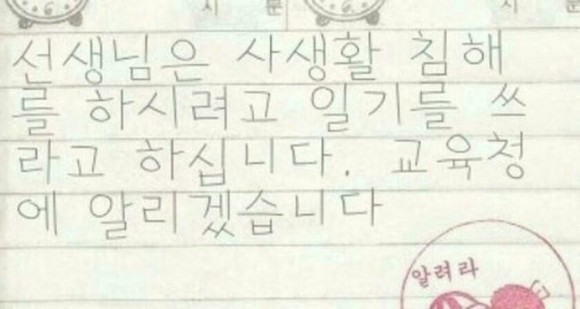 시 분 시 분
선생님은 사생활 침해
를 하시려고 일기를 쓰
라고 하십니다. 교육청
에 알리겠습니다
알려라